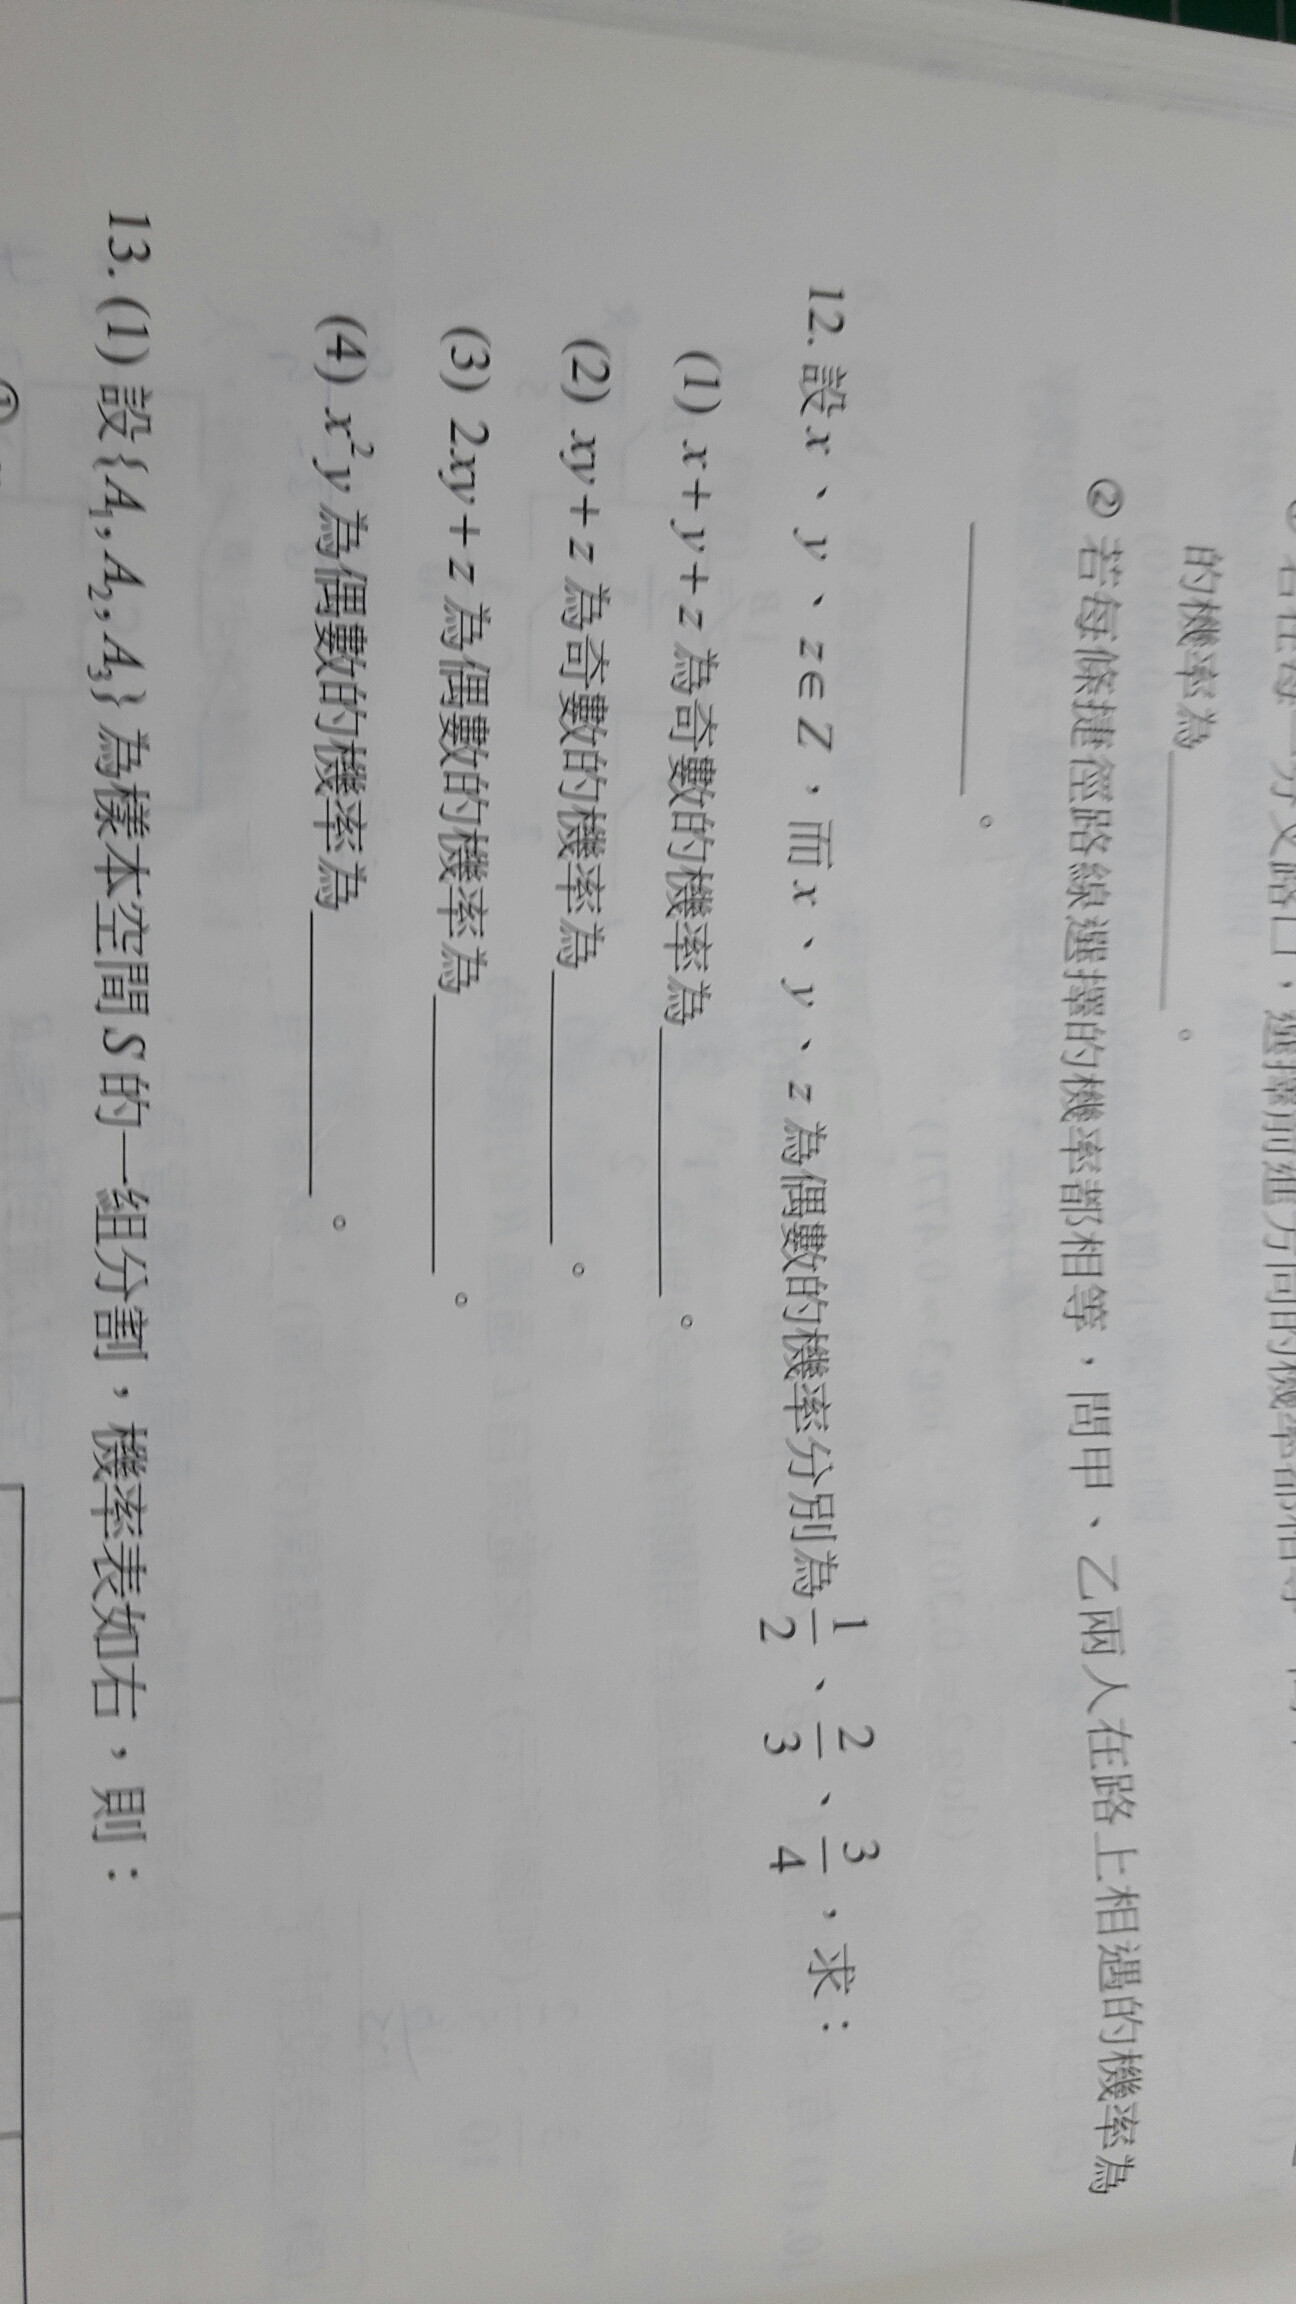 的機率為。
② 若每條捷徑路線選擇的機率都相等，問甲、乙兩人在路上相遇的機率為
。
12. 設 x、y、z∈Z，而 x、y、z 為偶數的機率分別為 1/2、2/3、3/4，求：
(1) x+y+z 為奇數的機率為。
(2) xy+z 為奇數的機率為。
(3) 2xy+z 為偶數的機率為。
(4) x²y 為偶數的機率為。
13. (1) 設 {A₁, A₂, A₃} 為樣本空間 S 的一組分割，機率表如右，則：